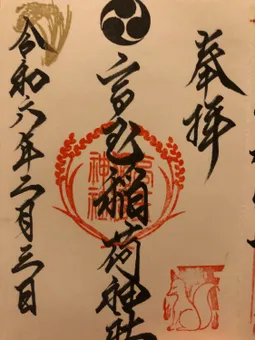 奉拝
稲荷神社
令和六年二月三日
神社